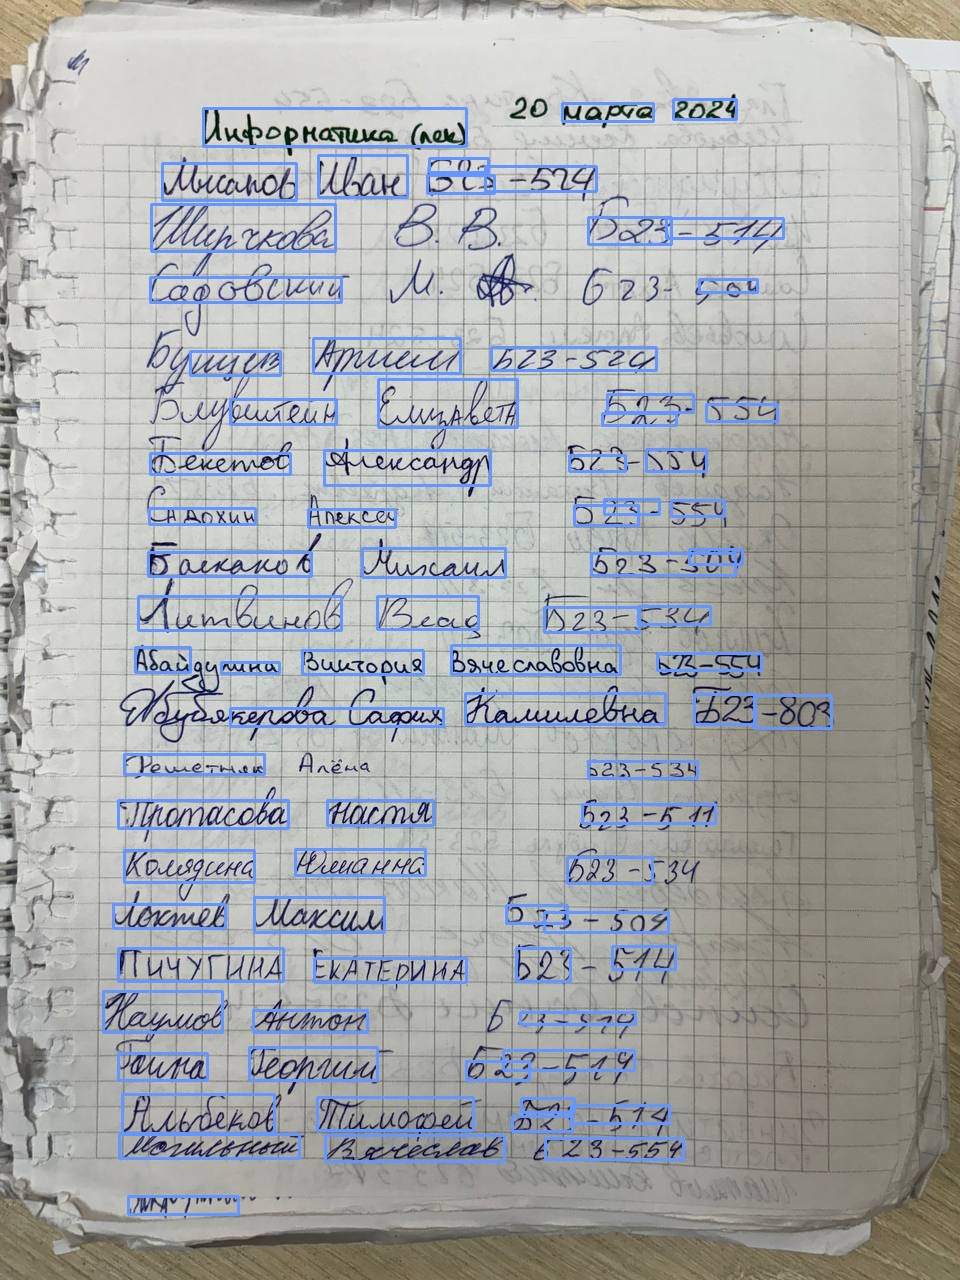 20 марта 2024
Информатика (лек)
Мысапов Иван Б23-524
Ширчкова В. В. Б23-514
Садовский М. Б23-504
Бущев Артем Б23-524
Блувштейн Елизавета Б23-554
Бекетов Александр Б23-554
Сидохин Алексей Б23-554
Басканов Михаил Б23-504
Литвинов Влад Б23-534
Абайдулина Виктория Вячеславовна Б23-554
Абубякерова Сафия Камилевна Б23-803
Решетняк Алёна Б23-534
Протасова Настя Б23-511
Колядина Юлианна Б23-534
Локтев Максим Б23-504
ПИЧУГИНА ЕКАТЕРИНА Б23-514
Наумов Антон Б23-514
Гаина Георгий Б23-514
Альбеков Тимофей Б23-514
Могильный Вячеслав Б23-554